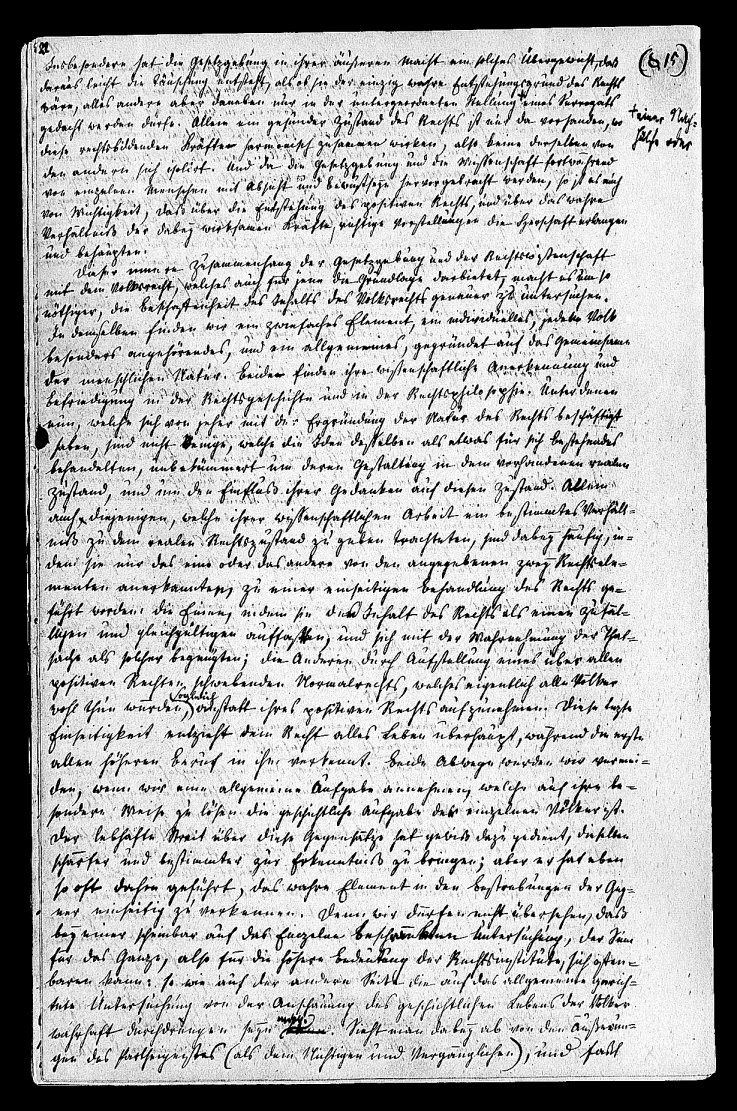 22
(§ 15)
Insbesondere hat die Gesetzgebung in ihrer äußeren Macht ein solches Übergewicht, daß
daraus leicht die Täuschung entsteht, als ob sie der einzig wahre Entstehungsgrund des Rechts
wäre, alles andere aber daneben nur in der untergeordneten Stellung + eines Surrogats
+ einer Nach-
hülfe oder
gedacht werden dürfe. Allein ein gesunder Zustand des Rechts ist nur da vorhanden, wo
diese rechtsbildenden Kräfte harmonisch zusammen wirken, also keine derselben von
den andern sich isolirt. Und da die Gesetzgebung und die Wissenschaft fortwährend
von einzelnen Menschen mit Absicht und Bewußtseyn hervorgebracht werden, so ist es auch
von Wichtigkeit, daß über die Entstehung des positiven Rechts, und über das wahre
Verhältniß der dabey wirksamen Kräfte, richtige Vorstellungen die Herrschaft erlangen
und behaupten.
Dieser innere Zusammenhang der Gesetzgebung und der Rechtswissenschaft
mit dem Volksrecht, welches auch für jene die Grundlage darbietet, macht es um so
nöthiger, die Beschaffenheit des Inhalts des Volksrechts genauer zu untersuchen.
In demselben finden wir ein zwiefaches Element, ein individuelles, jedem Volk
besonders angehörendes, und ein allgemeines, gegründet auf das Gemeinsame
der menschlichen Natur. Beide finden ihre wissenschaftliche Anerkennung und
Befriedigung in der Rechtsgeschichte und in der Rechtsphilosophie. Unter denen
nun, welche sich von jeher mit der Ergründung der Natur des Rechts beschäftigt
haben, sind nicht Wenige, welche die Idee desselben als etwas für sich bestehendes
behandelten, unbekümmert um deren Gestaltung in dem vorhandenen realen
Zustand, und um den Einfluß ihrer Gedanken auf diesen Zustand. Allein
auch diejenigen, welche ihrer wissenschaftlichen Arbeit ein bestimmtes Verhält-
niß zu dem realen Rechtszustand zu geben trachteten, sind dabey häufig, in-
dem sie nur das eine oder das andere von den angegebenen zwey Rechtsele-
menten anerkannten, zu einer einseitigen Behandlung des Rechts ge-
führt worden: die Einen, indem sie den Inhalt des Rechts als einen zufäl-
ligen und gleichgültigen auffaßten, und sich mit der Wahrnehmung der That-
sache als solcher begnügten; die Anderen durch Aufstellung eines über allen
positiven Rechten schwebenden Normalrechts, welches eigentlich alle Völker
wohl thun würden, sogleich anstatt ihres positiven Rechts aufzunehmen. Diese letzte
Einseitigkeit entzieht dem Recht alles Leben überhaupt, während die erste
allen höheren Beruf in ihm verkennt. Beide Abwege werden wir vermei-
den, wenn wir eine allgemeine Aufgabe annehmen, welche auf ihre be-
sondere Weise zu lösen die geschichtliche Aufgabe der einzelnen Völker ist.
Der lebhafte Streit über diese Gegensätze hat gewiß dazu gedient, dieselben
schärfer und bestimmter zur Erkenntniß zu bringen; aber er hat eben
so oft dahin geführt, das wahre Element in den Bestrebungen der Geg-
ner einseitig zu verkennen. Denn wir dürfen nicht übersehen, daß
bey einer scheinbar auf das Einzelne beschränkten Untersuchung, der Sinn
für das Ganze, also für die höhere Bedeutung der Rechtsinstitute, sich offen-
baren kann: so wie auf der andern Seite die auf das allgemeine gerich-
tete Untersuchung von der Anschauung des geschichtlichen Lebens der Völker
wahrhaft durchdrungen seyn mag. Sieht man dabey ab von den Äußerun-
gen des Partheigeistes (als dem Nichtigen und Vergänglichen), und faßt